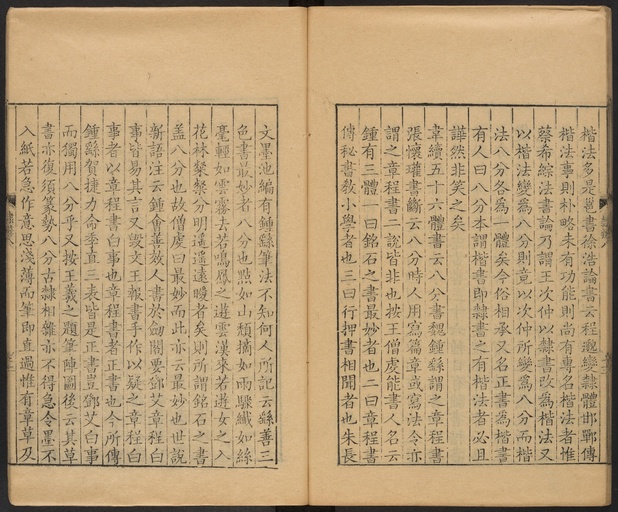 楷法多是邕書徐浩論書云程邈變隸體邯鄲傳
楷法事則朴略未有功能則尚有專名楷法者惟
蔡希綜法書論乃謂王次仲以隸書改為楷法又
以楷法變為八分則竟以次仲所變為八分而楷
法八分各為一體矣今俗相承又名正書為楷書
有人曰八分本謂楷書即隸書之有楷法者必且
譁然非笑之矣
韋續五十六體書云八分書魏鍾繇謂之章程書
張懷瓘書斷云八分時人用寫篇章或寫法令亦
謂之章程書二說皆非也按王僧虔能書人名云
鍾有三體一曰銘石之書最妙者也二曰章程書
傳秘書教小學者也三曰行押書相聞者也朱長
文墨池編有鍾繇筆法不知何人所記云繇善三
色書最妙者八分也點如山頹摘如雨驟纖如絲
毫輕如雲霧去若鳴鳳之遊雲漢來若遊女之入
花林粲粲分明遥遥遠曖者矣則所謂銘石之書
盖八分也故僧虔曰最妙而此亦云最妙也世說
新語注云鍾會善效人書於劒閣要鄧艾章程白
事皆易其言又毀文王報書手作以疑之章程白
事者以章程書白事也章程書者正書也今所傳
鍾繇賀捷力命季直三表皆是正書豈鄧艾白事
而獨用八分乎又按王羲之題筆陣圖後云其草
書亦復須篆勢八分古隸相雜亦不得急令墨不
入紙若急作意思淺薄而筆即直過惟有章草及